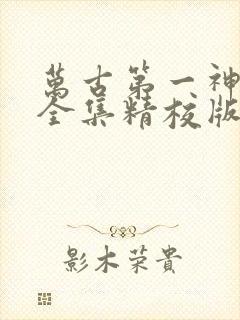 萬古第一神
全集精校版
影木荣貴